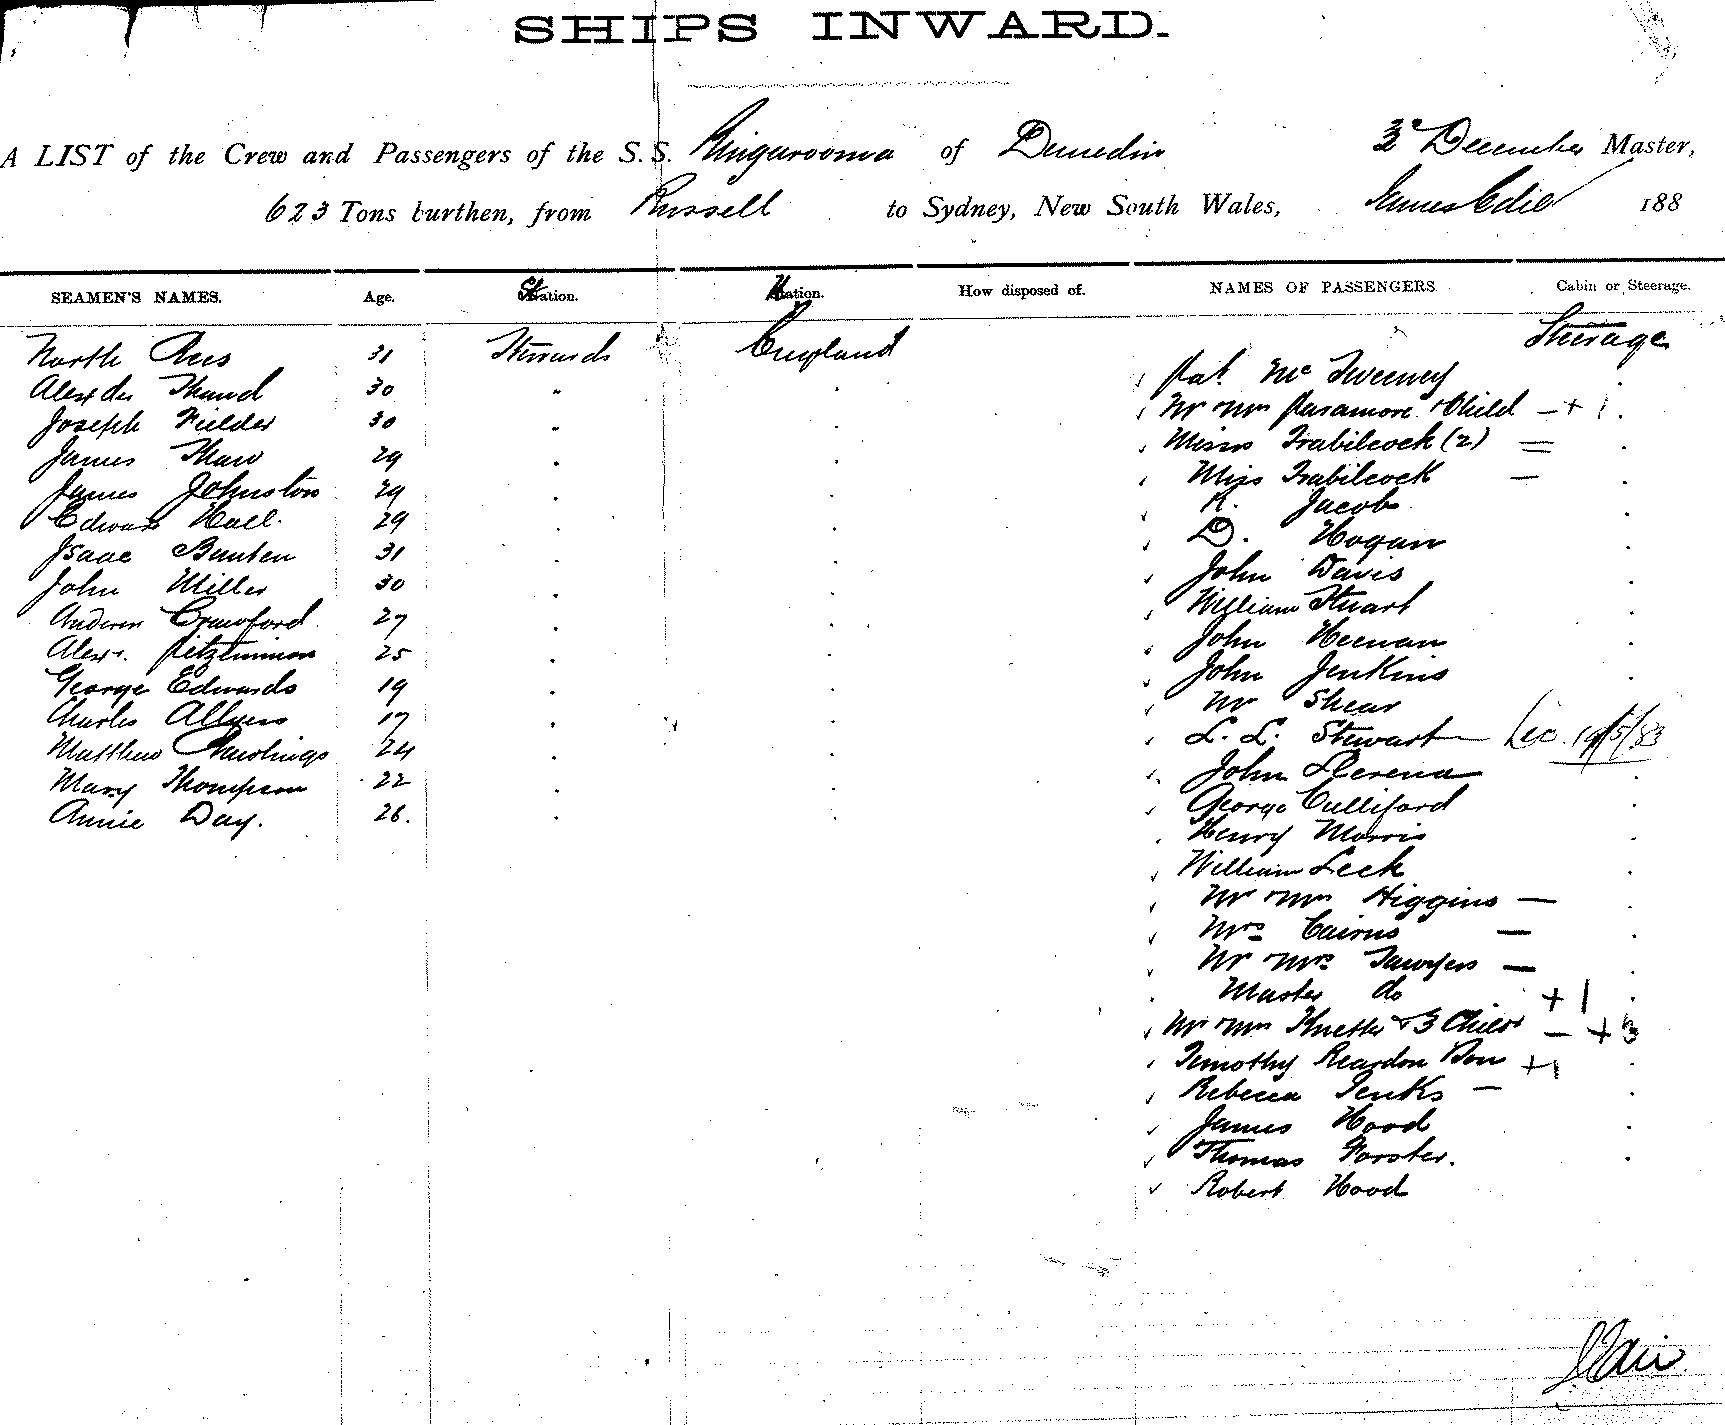 SHIPS INWARD.
A LIST of the Crew and Passengers of the S.S. Ringarooma of Dunedin 3d December Master,
623 Tons burthen, from Russell to Sydney, New South Wales, James Edie 188
SEAMEN'S NAMES. Age. Station. Nation. How disposed of. NAMES OF PASSENGERS Cabin or Steerage.
Steerage
North Rees 31 Stewards England
Pat Mc Sweeney
Alexder Shand 30 "
Mr & Mrs Paramore & Child - + 1
Joseph Fielder 30 "
Misses Trabilcock (2) =
James Shaw 29
Miss Trabilcock -
James Johnston 29
K. Jacob
Edward Hall. 29
D. Hogan
Isaac Banten 31
John Davis
John Miller 30
William Stuart
Crawford 27
John Heenan
Alexr. Fitzsimmon 25
John Jenkins
George Edwards 19
Mr Shear
Charles Allyers 17
L. L. Stewart - Lic. 19/5/83
Matthew Rawlings 24
John
Mary Thompson 22
George Culliford
Annie Day. 26.
Henry Morris
William Leek
Mr & Mrs Higgins -
Mrs Cairns -
Mr & Mrs Sawyers -
Master do + 1
Mr & Mrs & 3 Child - + 3
Timothy Reardon Son + 1
Rebecca Jenks -
James Hood
Thomas Forster.
Robert Hood